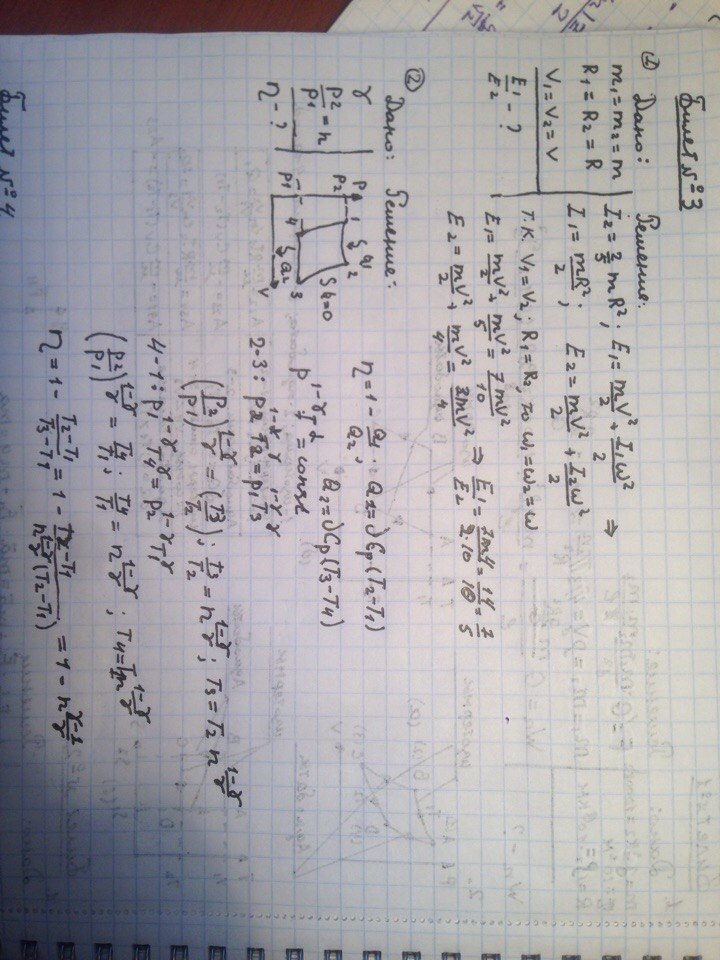 Билет №3
② Дано: Решение:
m₁=m₂=m
R₁=R₂=R
V₁=V₂=V
E₁/E₂ - ?
I₂=2/5 mR²; E₁=mV²/2+I₁ω²/2 ⇒
I₁=mR²/2; E₂=mV²/2+I₂ω²/2
Т.К. V₁=V₂; R₁=R₂, то ω₁=ω₂=ω
E₁=mV²/2+mV²/5=7mV²/10
E₂=mV²/2+mV²/4=3mV²/4 ⇒ E₁/E₂
⑫ Дано: Решение:
γ
p₂/p₁=n
η-?
P
p₂ 1 Q₁ 2
Q=0
p₁ 4 Q₂ 3
V
η=1-Q₁/Q₂; Q₁=νCp(T₂-T₁)
Q₂=νCp(T₃-T₄)
p^(1-γ)T^γ=const
2-3: p₂^(1-γ)T₂^γ=p₁^(1-γ)T₃^γ
(p₂/p₁)^((1-γ)/γ)=(T₃/T₂); T₃/T₂=n^((1-γ)/γ); T₃=T₂n^((1-γ)/γ)
4-1: p₁^(1-γ)T₄^γ=p₂^(1-γ)T₁^γ
(p₂/p₁)^((1-γ)/γ)=T₄/T₁; T₄/T₁=n^((1-γ)/γ); T₄=T₁n^((1-γ)/γ)
η=1-(T₂-T₁)/(T₃-T₁)=1-(T₂-T₁)/(n^((1-γ)/γ)(T₂-T₁))=1-n^((γ-1)/γ)
Билет №4